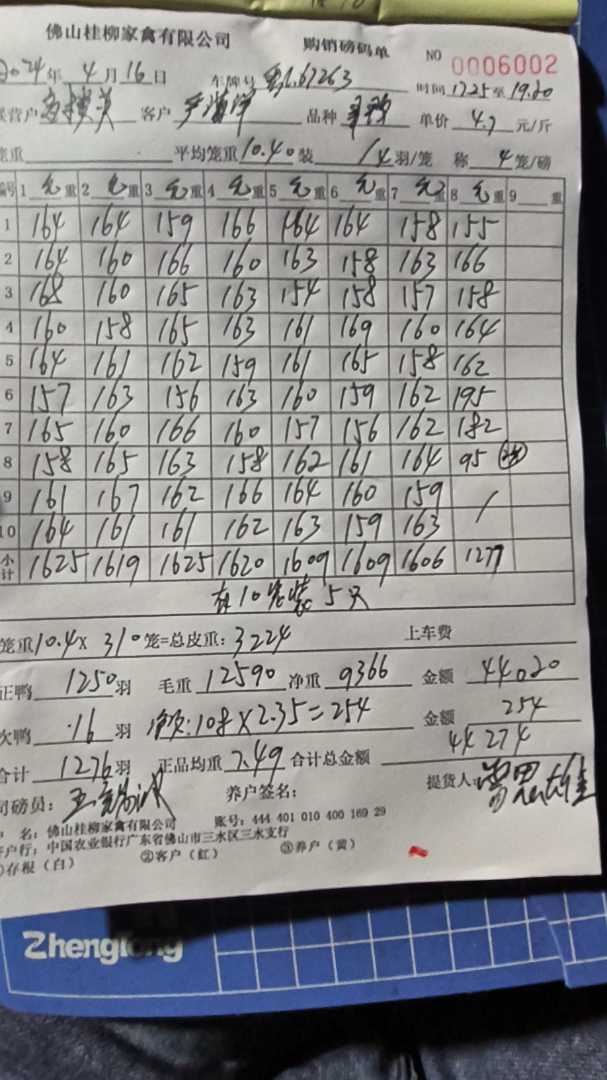 佛山桂柳家禽有限公司 购销磅码单 NO 0006002
2024年 4月16日 车牌号 粤L67263 时间 17.25 至 19.20
客户 品种 单价 4.7 元/斤
笼重 平均笼重 10.40 装 14 羽/笼 称 4 笼/磅
编号 1 毛重 2 毛重 3 毛重 4 毛重 5 毛重 6 毛重 7 毛重 8 毛重 9 重
1 164 164 159 166 164 164 158 155
2 164 160 166 160 163 158 163 166
3 168 160 165 163 154 158 157 158
4 160 158 165 163 161 169 160 164
5 164 161 162 159 161 165 158 162
6 157 163 156 163 160 159 162 195
7 165 160 166 160 157 156 162 182
8 158 165 163 158 162 161 164 95
9 161 167 162 166 164 160 159 /
10 164 161 161 162 163 159 163
小计 1625 1619 1625 1620 1609 1609 1606 1277
有10笼装5只
笼重 10.4 X 310 笼=总皮重: 3224 上车费
正鸭 1250 羽 毛重 12590 净重 9366 金额 44020
次鸭 16 羽 108 X 2.35 = 254 金额 254
合计 1276 羽 正品均重 7.49 合计总金额 44274
司磅员: 养户签名: 提货人:
户 名: 佛山桂柳家禽有限公司 账号: 444 401 010 400 169 29
开户行: 中国农业银行广东省佛山市三水区三水支行
①存根（白） ②客户（红） ③养户（黄）
Zhenglong